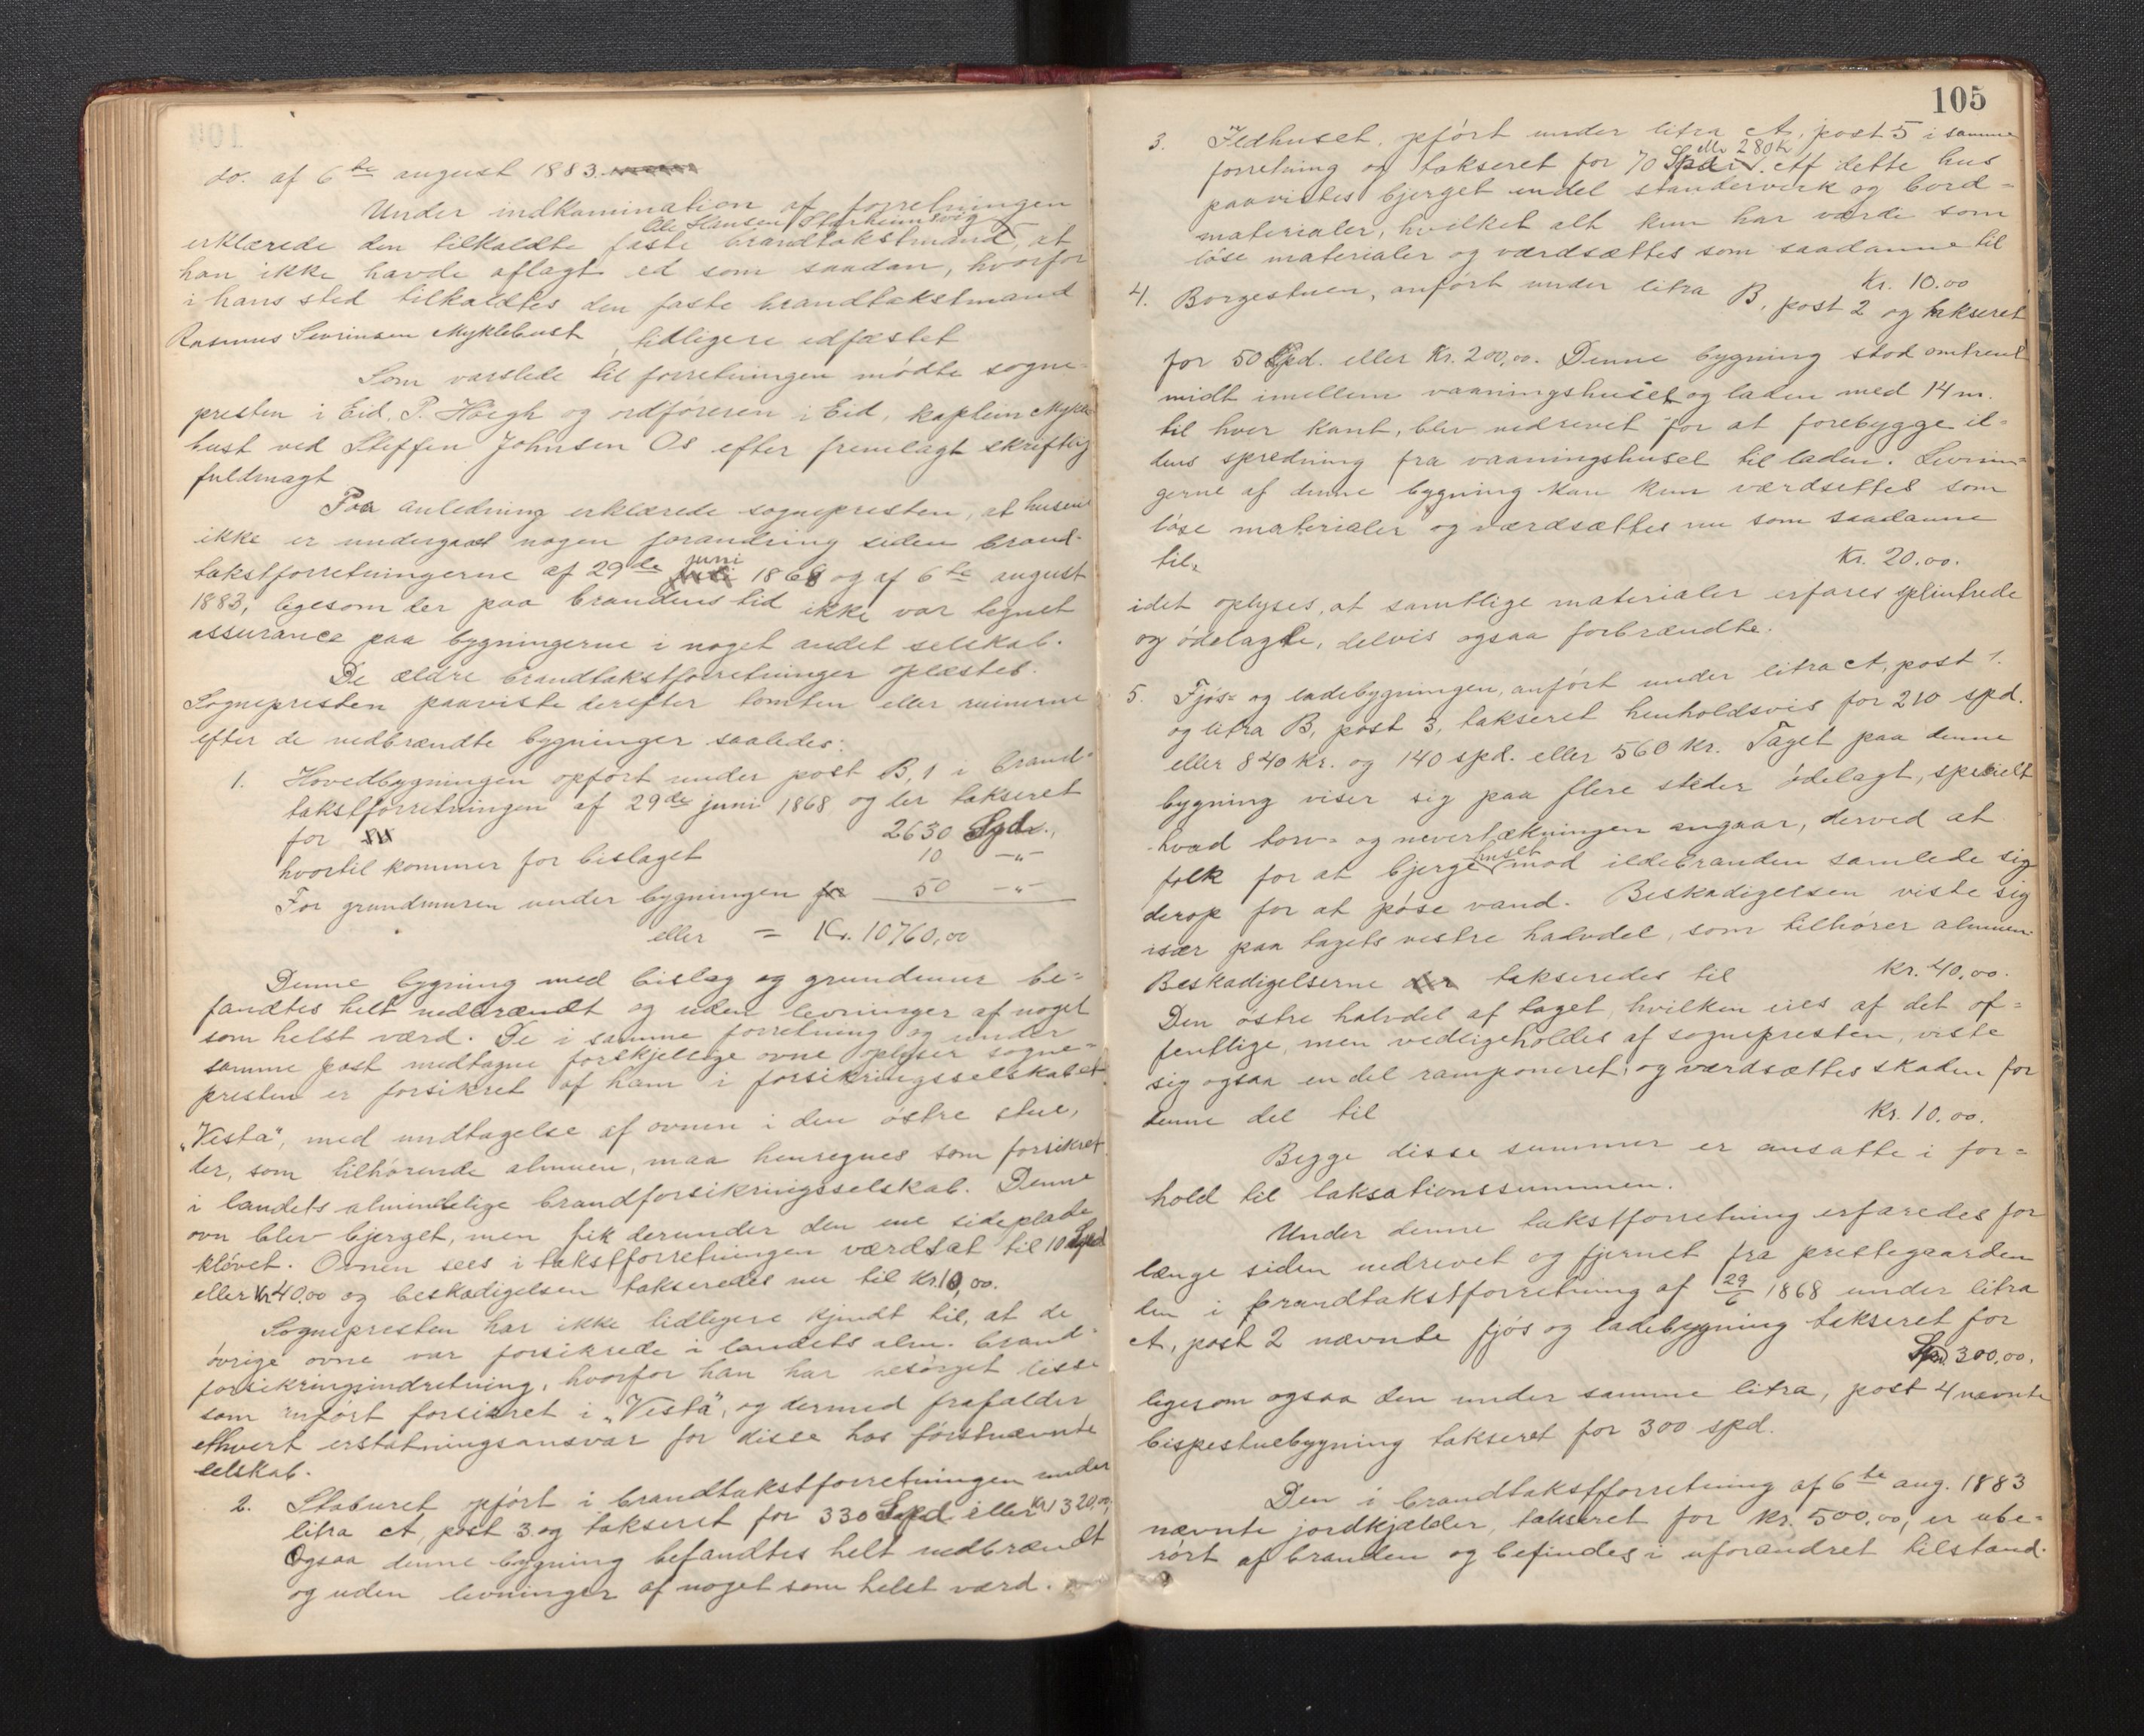 do. af 6te august 1883.
Under indkamination af forretningen
Ole Hansen Starheimsvig
erklærede den tilkaldte faste brandtakstmand, at
han ikke havde aflagt ed som saadan, hvorfor
i hans sted tilkaldtes den faste brandtakstmand
Rasmus Sevrinsen Myklebust, tidligere edfæstet
Som varslede til forretningen mødte sogne-
presten i Eid, P. Höegh og ordføreren i Eid, kaptein Mykle-
bust ved Steffen Johnsen Os efter fremlagt skriftlig
fuldmagt
Paa anledning erklærede sognepresten, at husene
ikke er undergaaet nogen forandring siden brand-
takstforretningerne af 29de juni 1868 og af 6te august
1883, ligesom der paa brandens tid ikke var tegnet
assurance paa bygningerne i noget andet selskab.
De ældre brandtakstforretninger oplæstes.
Sognepresten paaviste derefter tomten eller ruinerne
efter de nedbrændte bygninger saaledes:
1. Hovedbygningen opført under post B, 1 i brand-
takstforretningen af 29de juni 1868 og der takseret
for 2630 Spd.,
hvortil kommer for bislaget 10 -"-
For grundmuren under bygningen 50 -"-
eller = Kr. 10760,00
Denne bygning med bislag og grundmur be-
fandtes helt nedbrændt og uden levninger af noget
som helst værd. De i samme forretning og under
samme post medtagne forskjellige ovne oplyser sogne-
presten er forsikret af ham i forsikringsselskabet
„Vesta", med undtagelse af ovnen i den østre stue,
der, som tilhørende almuen, maa henregnes som forsikret
i landets almindelige brandforsikringsselskab. Denne
ovn blev bjerget, men fik derunder den ene sideplade
kløvet. Ovnen sees i takstforretningen værdsat til 10 Spd
eller Kr 40.00 og beskadigelsen takseredes nu til Kr. 10,00.
Sognepresten har ikke tidligere kjendt til, at de
øvrige ovne var forsikrede i landets alm. brand-
forsikringsindretning, hvorfor han har besørget disse
som anført forsikret i „Vesta", og dermed frafalder
ethvert erstatningsansvar for disse hos førstnævnte
selskab.
2. Staburet opført i brandtakstforretningen under
litra A, post 3 og takseret for 330 Spd eller Kr 1320,00,
Ogsaa denne bygning befandtes helt nedbrændt
og uden levninger af noget som helst værd.
105
3. Ildhuset, opført under litra A, post 5 i samme
forretning og takseret for 70 Spd. eller 280 Kr. Af dette hus
paavistes bjerget endel standerverk og bord-
materialer, hvilket alt kun har værde som
løse materialer og værdsættes som saadanne til
Kr. 10.00
4. Borgestuen, anført under litra B, post 2 og takseret
for 50 Spd. eller Kr. 200,00. Denne bygning stod omtrent
midt imellem vaaningshuset og laden med 14 m.
til hver kant, blev nedrevet for at forebygge il-
dens spredning fra vaaningshuset til laden. Levnin-
gerne af denne bygning kan kun værdsettes som
løse materialer og værdsættes nu som saadanne
til. Kr. 20.00.
idet oplyses, at samtlige materialer erfares splintrede
og ødelagte, delvis ogsaa forbrændte.
5. Fjøs- og ladebygningen, anført under litra A, post 1.
og litra B, post 3, takseret henholdsvis for 210 spd.
eller 840 Kr. og 140 spd. eller 560 Kr. Taget paa denne
bygning viser sig paa flere steder ødelagt, specielt
hvad torv- og nevertækningen angaar, derved at
folk for at bjerge huset mod ildebranden samlede sig
derop for at pøse vand. Beskadigelsen viste sig
især paa tagets vestre halvdel, som tilhører almuen.
Beskadigelserne takseredes til Kr. 40,00.
Den østre halvdel af taget, hvilken eies af det of-
fentlige, men vedligeholdes af sognepresten, viste
sig ogsaa endel ramponeret, og værdsættes skaden for
denne del til Kr. 10.00.
Begge disse summer er ansatte i for-
hold til taksationssummen.
Under denne takstforretning erfaredes for
længe siden nedrevet og fjernet fra prestegaarden
den i brandtakstforretning af 29/6 1868 under litra
A, post 2 nævnte fjøs og ladebygning takseret for
Spd 300,00,
ligesom ogsaa den under samme litra, post 4 nævnte
bispestuebygning takseret for 300 spd.
Den i brandtakstforretning af 6te aug. 1883
nævnte jordkjælder, takseret for Kr. 500,00, er ube-
rørt af branden og befindes i uforandret tilstand.